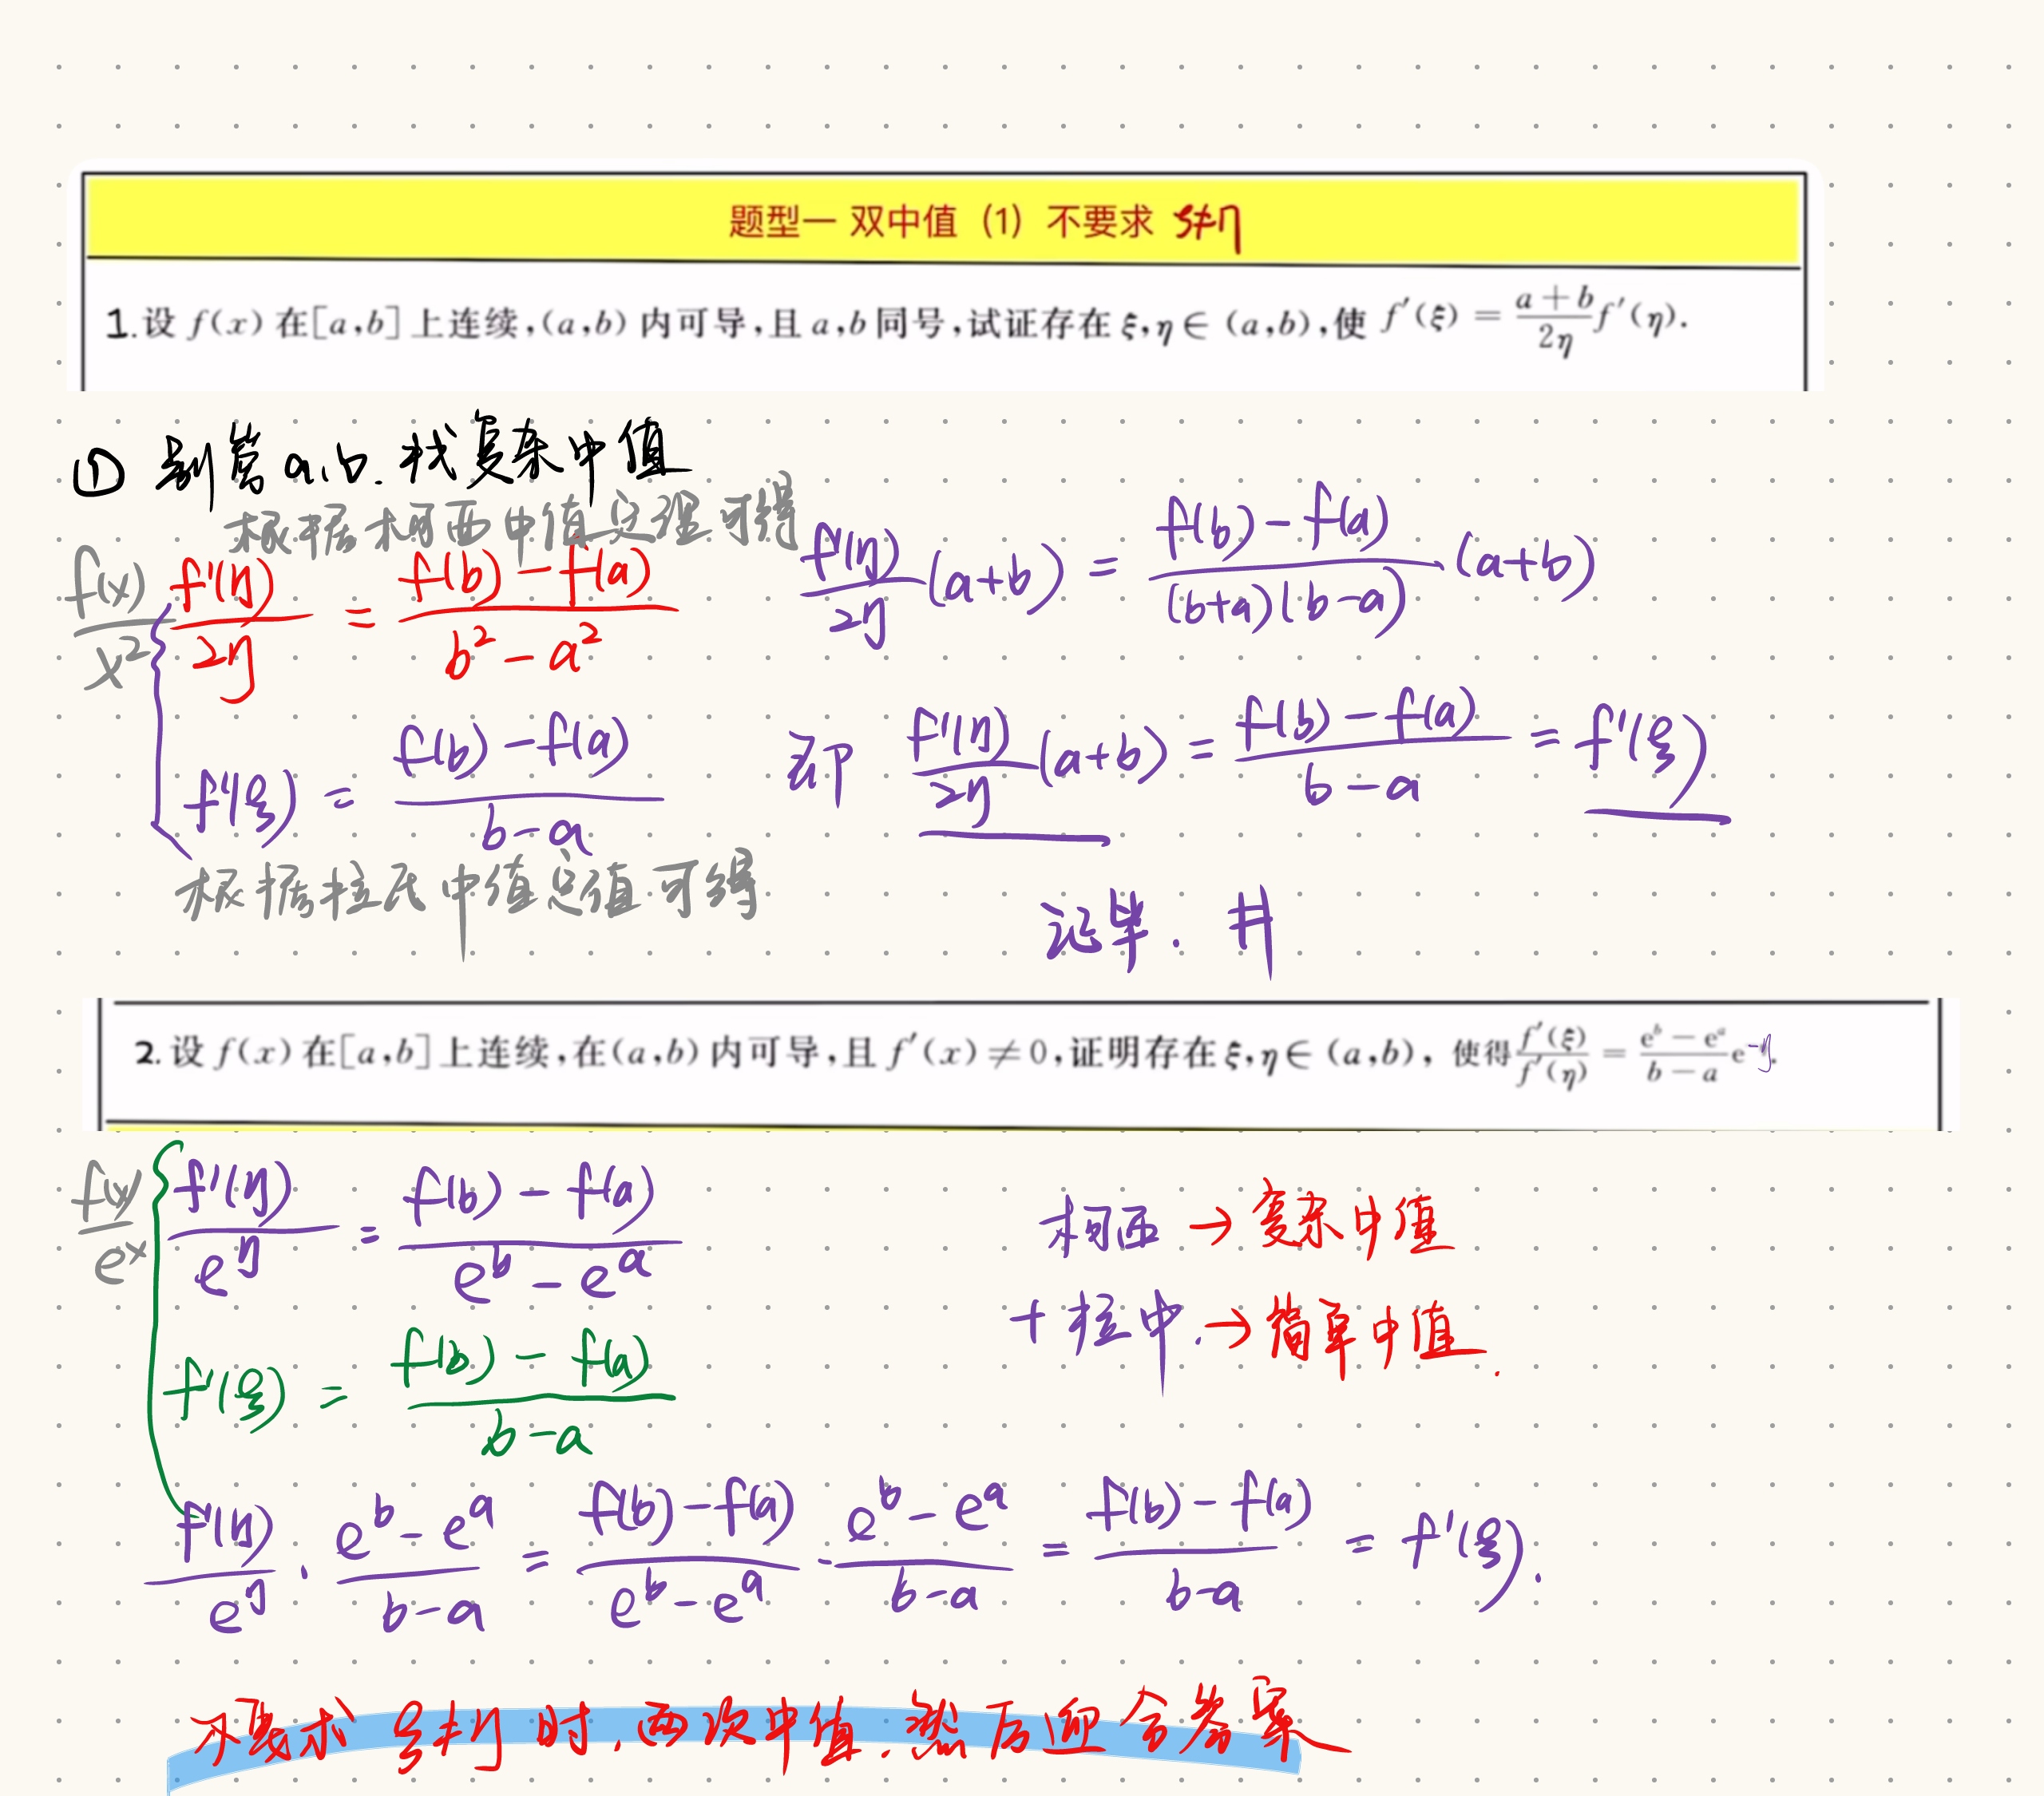 题型一 双中值（1）不要求 ξ≠η
1.设 f(x) 在[a,b]上连续,(a,b)内可导,且 a,b 同号,试证存在 ξ,η∈(a,b),使 f′(ξ) = \frac{a+b}{2η} f′(η).
① 别管a,b.找复杂中值
根据柯西中值定理可得
\frac{f(x)}{x²} \frac{f'(η)}{2η} = \frac{f(b)-f(a)}{b²-a²}
\frac{f'(η)}{2η}(a+b) = \frac{f(b)-f(a)}{(b+a)(b-a)}(a+b)
f'(ξ) = \frac{f(b)-f(a)}{b-a}
即 \frac{f'(η)}{2η}(a+b) = \frac{f(b)-f(a)}{b-a} = f'(ξ)
根据拉氏中值定值可得
证毕. #
2.设 f(x) 在[a,b]上连续,在(a,b)内可导,且 f′(x)≠0,证明存在 ξ,η∈(a,b), 使得 \frac{f′(ξ)}{f′(η)} = \frac{e^b-e^a}{b-a} e^{-η}.
\frac{f(x)}{e^x} \frac{f'(η)}{e^η} = \frac{f(b)-f(a)}{e^b-e^a}
柯西 → 复杂中值
+ 拉中. → 简单中值.
f'(ξ) = \frac{f(b)-f(a)}{b-a}
\frac{f'(η)}{e^η} · \frac{e^b-e^a}{b-a} = \frac{f(b)-f(a)}{e^b-e^a} · \frac{e^b-e^a}{b-a} = \frac{f(b)-f(a)}{b-a} = f'(ξ).
不要求 ξ≠η 时,两次中值.然后迎合答案